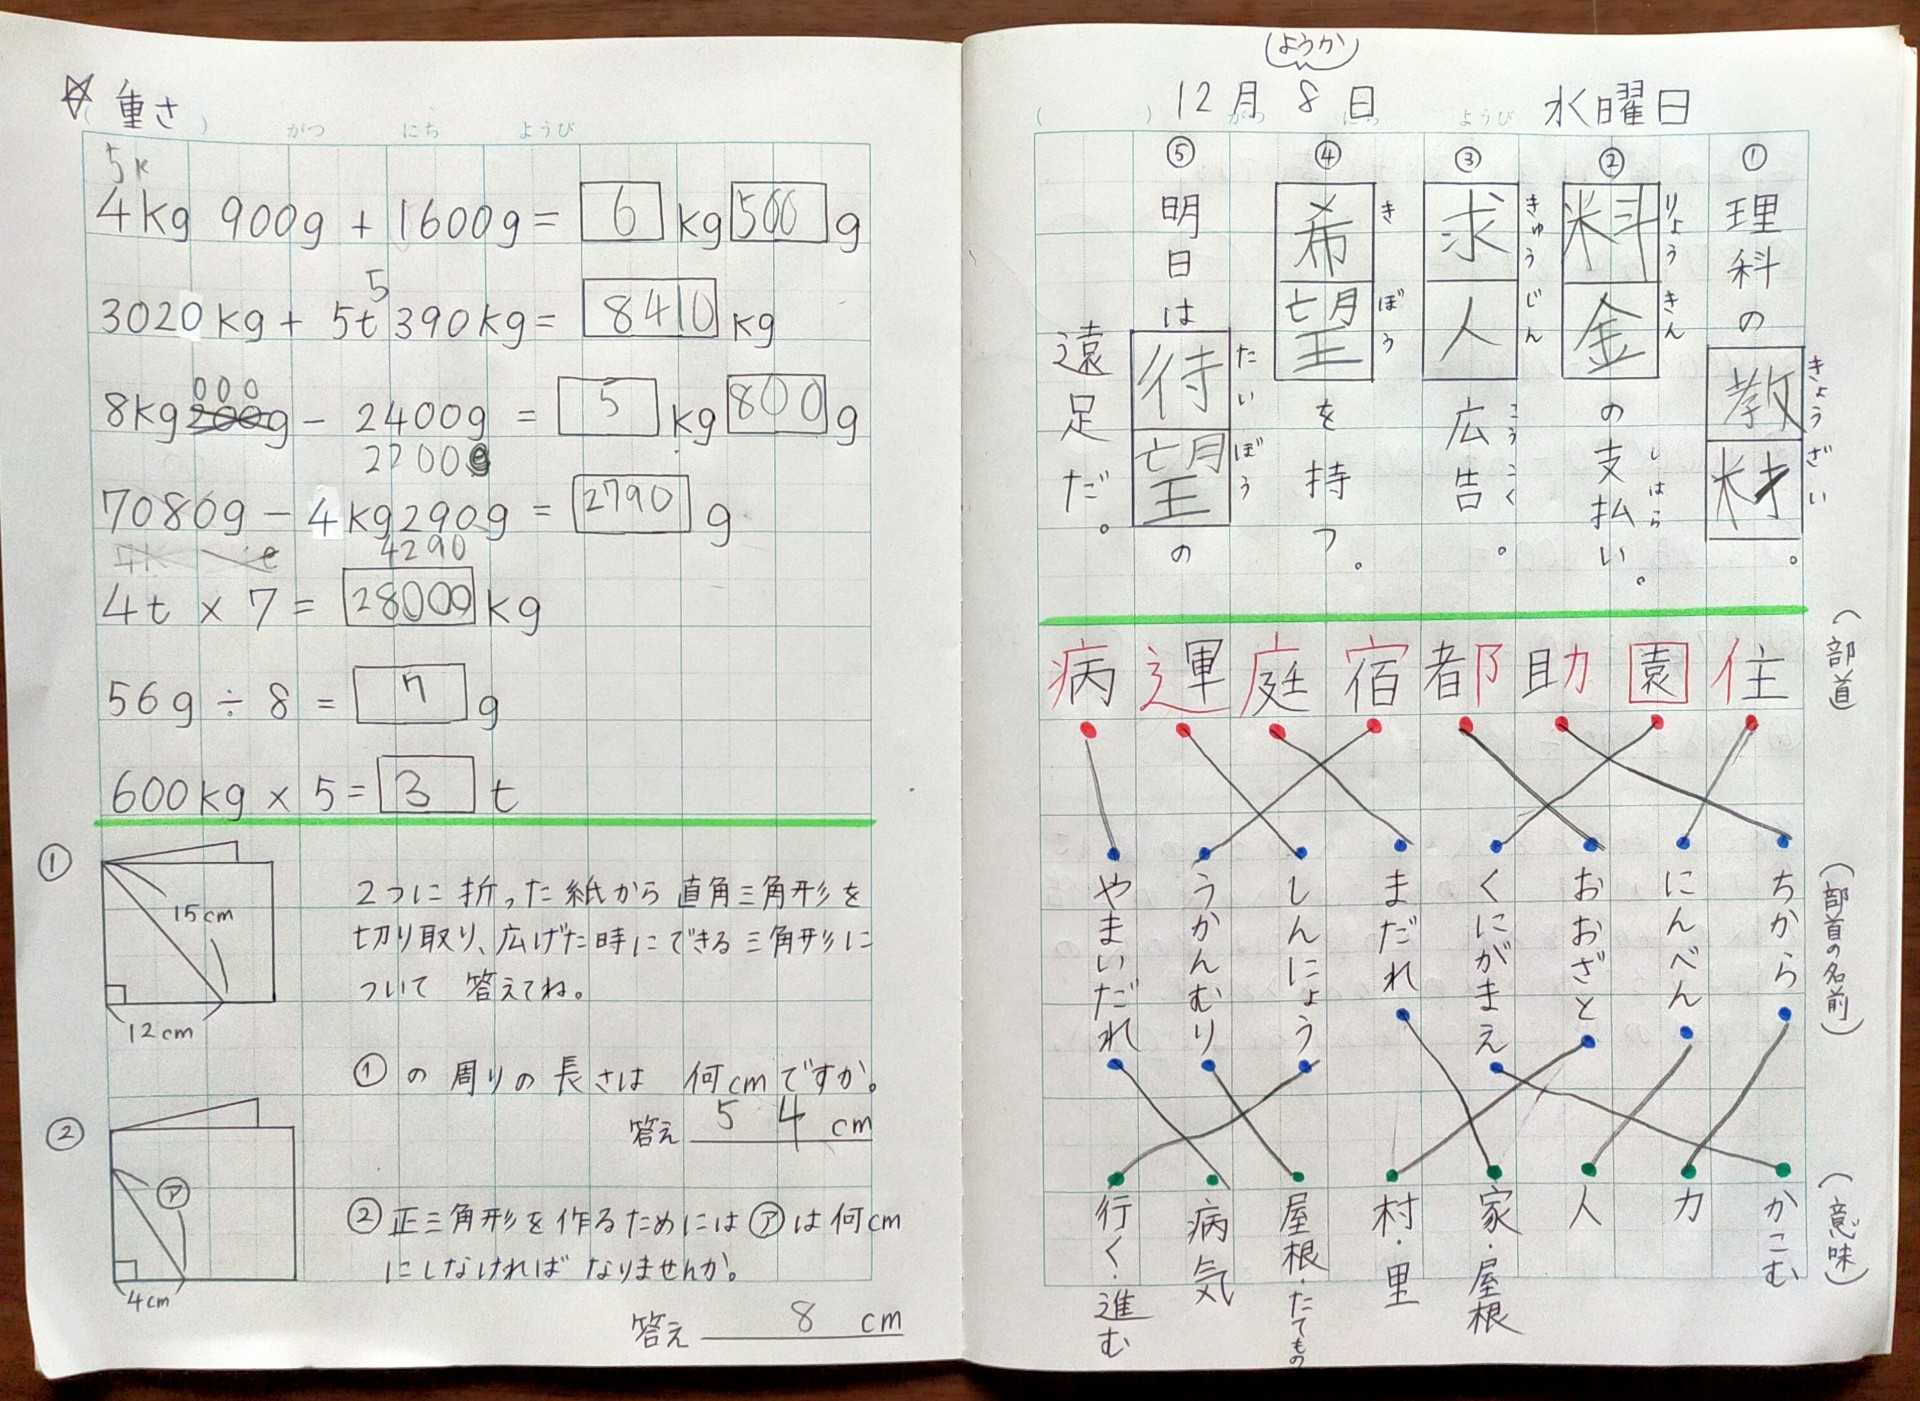 重さ
( ) がつ にち ようび
5K
4kg 900g + 1600g = 6 kg 500 g
5
3020kg + 5t 390kg = 8410 kg
000
8kg 200g - 2400g = 5 kg 800 g
2200
7080g - 4kg290g = 2790 g
4290
4t × 7 = 28000 kg
56g ÷ 8 = 7 g
600kg × 5 = 3 t
①
15cm
12cm
2つに折った紙から直角三角形を
切り取り、広げた時にできる三角形に
ついて 答えてね。
①の周りの長さは 何cmですか。
答え 54 cm
②
㋐
4cm
②正三角形を作るためには㋐は何cm
にしなければなりませんか。
答え 8 cm
(ようか)
12月 8日 水曜日
( ) がつ にち ようび
① 理科の教材。
きょうざい
② 料金の支払い。
りょうきん
しはら
③ 求人広告。
きゅうじん
こうこく
④ 希望を持つ。
きぼう
⑤ 明日は待望の
たいぼう
遠足だ。
(部首)
住
園
助
都
宿
庭
運
病
(部首の名前)
ちから
にんべん
おおざと
くにがまえ
まだれ
しんにょう
うかんむり
やまいだれ
(意味)
かこむ
力
人
家・屋根
村・里
屋根・たてもの
病気
行く・進む